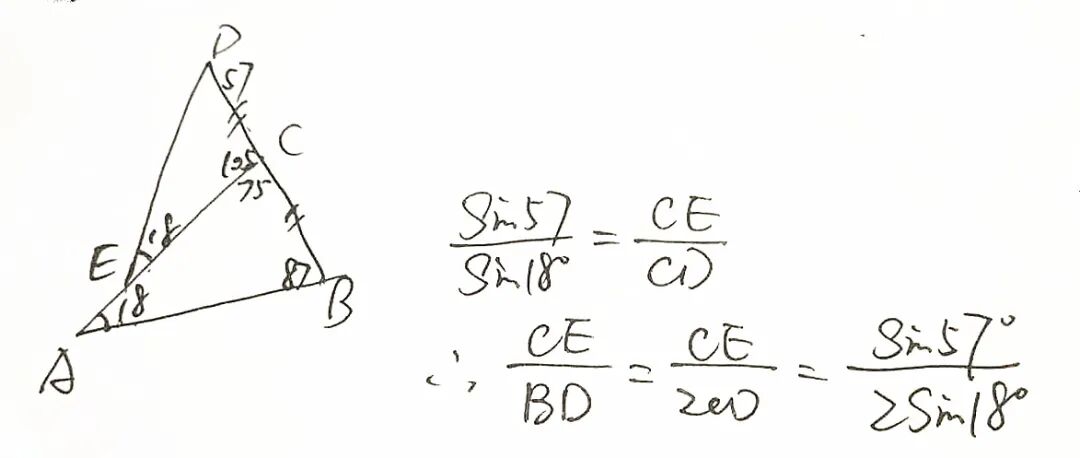 D
57
C
105
75
18
E
87
B
18
A
Sin57/Sin18° = CE/CD
∴ CE/BD = CE/2CD = Sin57°/2Sin18°